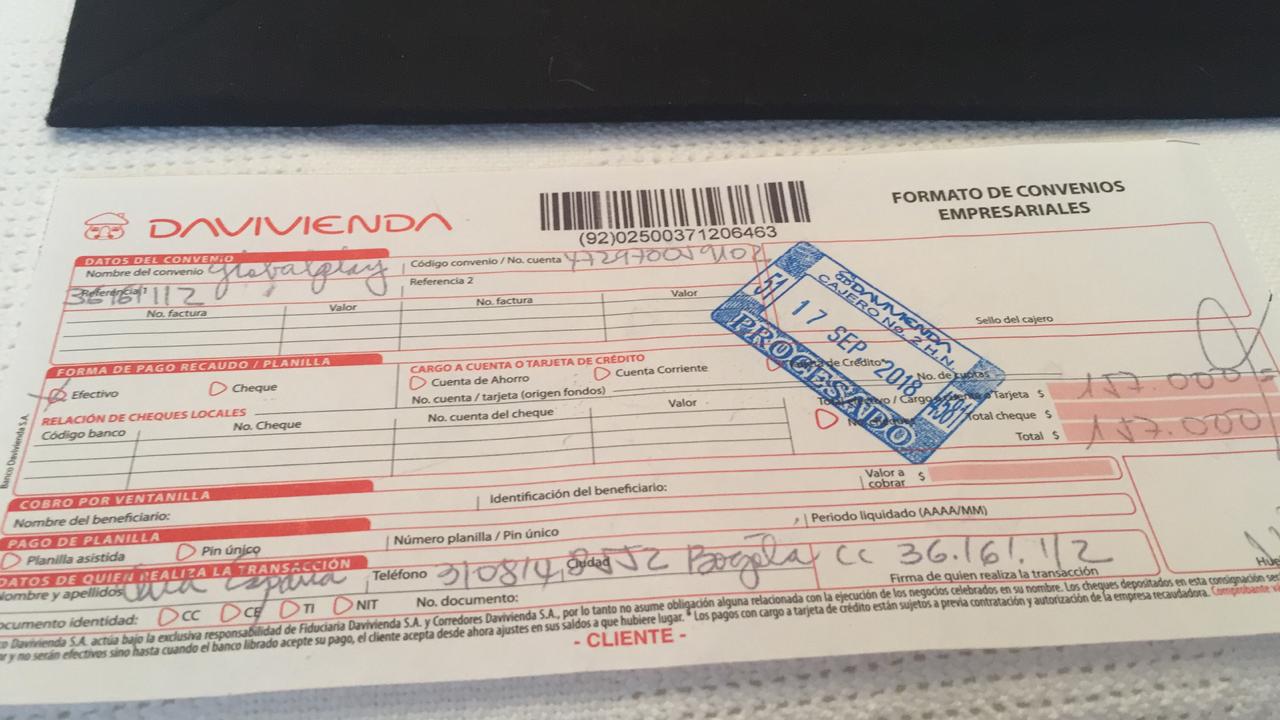 DAVIVIENDA
(92)02500371206463
FORMATO DE CONVENIOS
EMPRESARIALES
DATOS DEL CONVENIO
Nombre del convenio globalplay
Código convenio / No. cuenta
Referencia 1 36161112
Referencia 2
No. factura Valor No. factura Valor
Sello del cajero
DAVIVIENDA
CAJERO No. 2 H.N.
51
17 SEP 2018
4381
PROCESADO
FORMA DE PAGO RECAUDO / PLANILLA
Efectivo Cheque
CARGO A CUENTA O TARJETA DE CRÉDITO
Cuenta de Ahorro Cuenta Corriente de Crédito
No. cuenta / tarjeta (origen fondos) No. de cuotas
RELACIÓN DE CHEQUES LOCALES
Código banco No. Cheque No. cuenta del cheque Valor
/ Cargo a cuenta o Tarjeta $ 157.000
Total cheque $
Total $ 157.000
COBRO POR VENTANILLA
Nombre del beneficiario: Identificación del beneficiario: Valor a cobrar $
PAGO DE PLANILLA
Planilla asistida Pin único Número planilla / Pin único Periodo liquidado (AAAA/MM)
DATOS DE QUIEN REALIZA LA TRANSACCIÓN
Nombre y apellidos España Teléfono Ciudad Bogota CC 36.161.112
Firma de quien realiza la transacción
ocumento identidad: CC CE TI NIT No. documento:
Davivienda S.A. actúa bajo la exclusiva responsabilidad de Fiduciaria Davivienda S.A. y Corredores Davivienda S.A., por lo tanto no asume obligación alguna relacionada con la ejecución de los negocios celebrados en su nombre. Los cheques depositados en esta consignación
y no serán efectivos sino hasta cuando el banco librado acepte su pago, el cliente acepta desde ahora ajustes en sus saldos a que hubiere lugar. * Los pagos con cargo a tarjeta de crédito están sujetos a previa contratación y autorización de la empresa recaudadora.
- CLIENTE -
Banco Davivienda S.A.